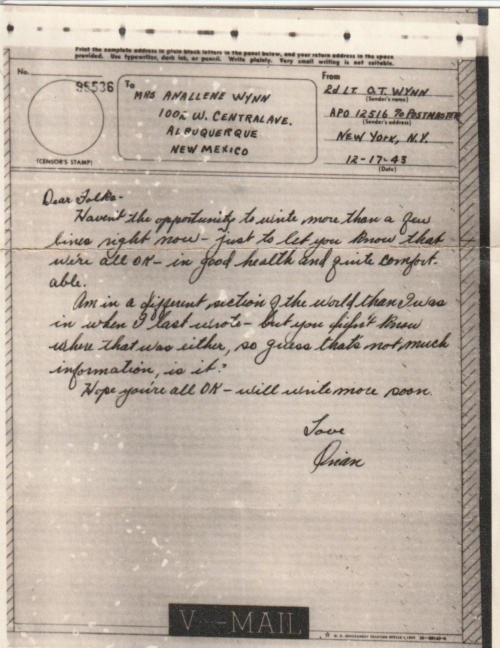 Print the complete address in plain block letters in the panel below, and your return address in the space
provided. Use typewriter, dark ink, or pencil. Write plainly. Very small writing is not suitable.
No.
95536
(CENSOR'S STAMP)
To
MRS ANALLENE WYNN
W. CENTRAL AVE.
ALBUQUERQUE
NEW MEXICO
From
2d LT O.T. WYNN
(Sender's name)
APO 12516 % POSTMASTER
(Sender's address)
NEW YORK, N.Y.
12-17-43
(Date)
Dear Folks-
Haven't the opportunity to write more than a few
lines right now - just to let you know that
we're all OK - in good health and quite comfort-
able.
Am in a different section of the world than I was
in when I last wrote - but you didn't know
where that was either, so guess that's not much
information, is it?
Hope you're all OK - will write more soon.
Love
V-MAIL